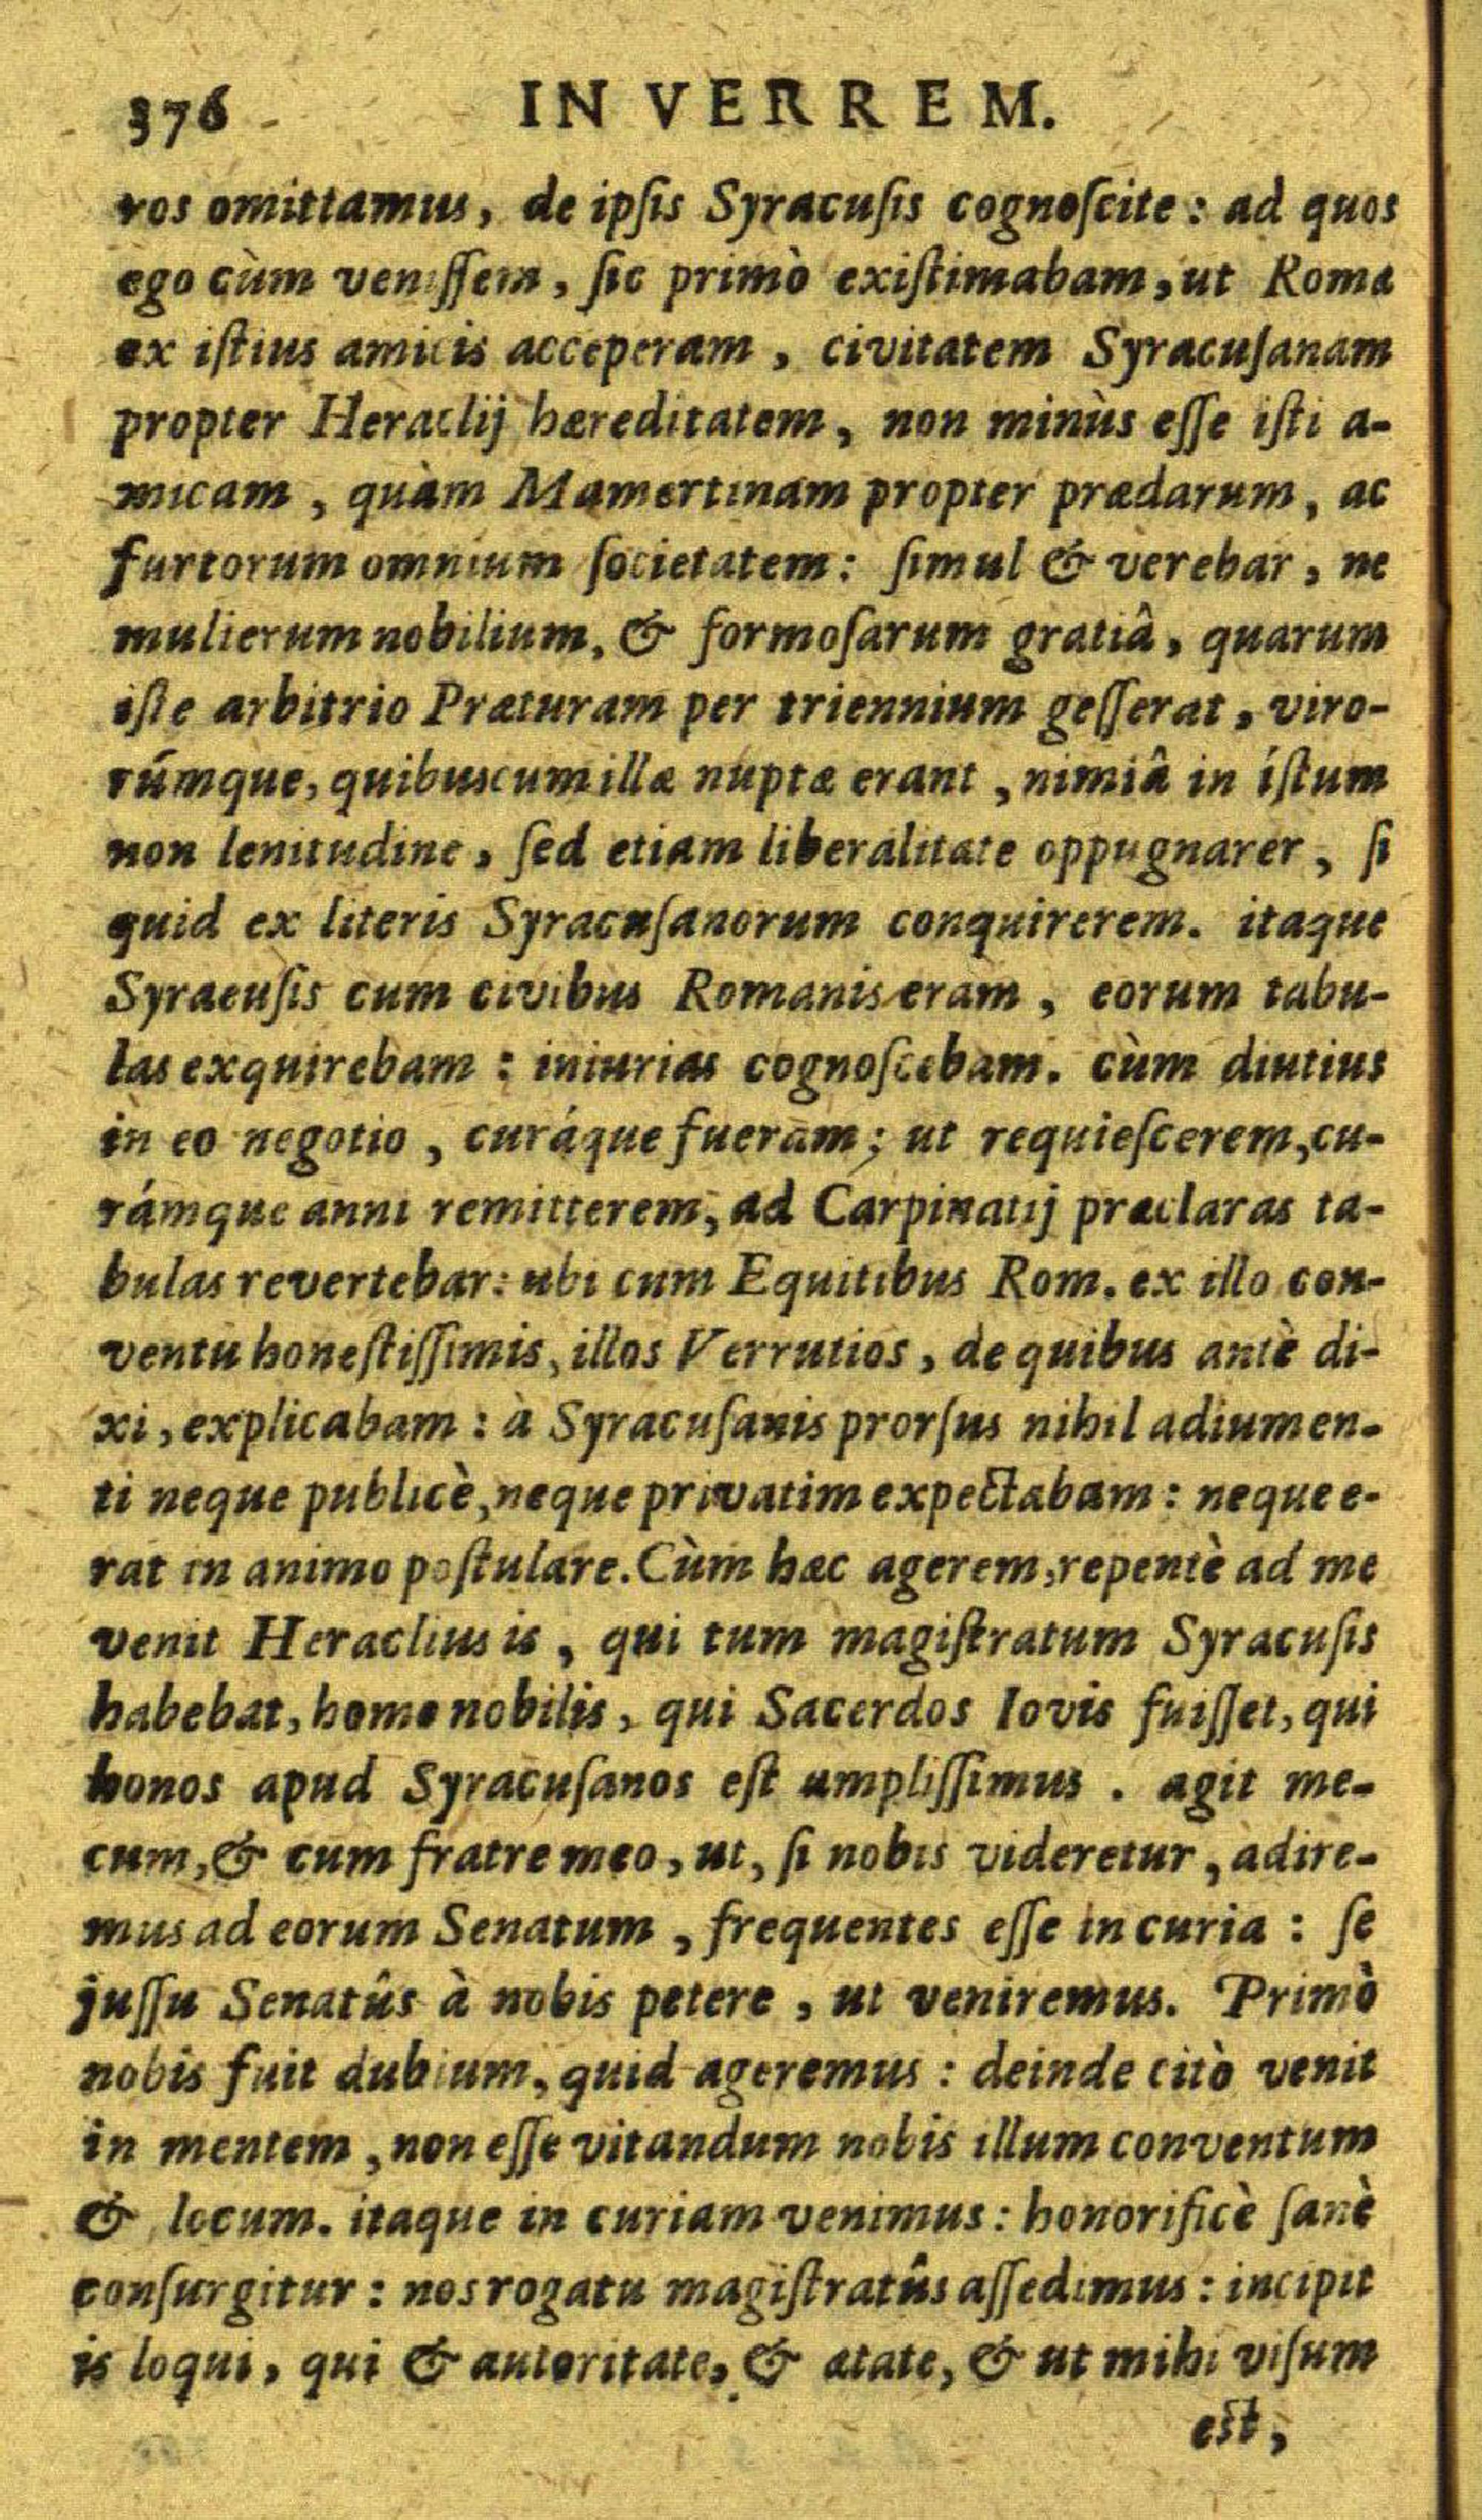 376 IN VERREM.
vos omittamus, de ipſis Syracuſis cognoſcite: ad quos
ego cùm veniſſem, ſic primò exiſtimabam, ut Roma
ex iſtius amicis acceperam, civitatem Syracuſanam
propter Heraclij hæreditatem, non minùs eſſe iſti a-
micam, quàm Mamertinam propter prædarum, ac
furtorum omnium ſocietatem: ſimul & verebar, ne
mulierum nobilium, & formoſarum gratiâ, quarum
iſte arbitrio Præturam per triennium geſſerat, viro-
rúmque, quibuscum illæ nuptæ erant, nimiâ in iſtum
non lenitudine, ſed etiam liberalitate oppugnarer, ſi
quid ex literis Syracuſanorum conquirerem. itaque
Syracuſis cum civibus Romanis eram, eorum tabu-
las exquirebam: iniurias cognoſcebam. cùm diutius
in eo negotio, curáque fueram; ut requieſcerem, cu-
rámque anni remitterem, ad Carpinatij præclaras ta-
bulas revertebar: ubi cum Equitibus Rom. ex illo con-
ventu honeſtiſſimis, illos Verrutios, de quibus antè di-
xi, explicabam: à Syracuſanis prorſus nihil adiumen-
ti neque publicè, neque privatim expectabam: neque e-
rat in animo poſtulare. Cùm hæc agerem, repentè ad me
venit Heraclius is, qui tum magiſtratum Syracuſis
habebat, homo nobilis, qui Sacerdos Iovis fuiſſet, qui
honos apud Syracuſanos eſt ampliſſimus. agit me-
cum, & cum fratre meo, ut, ſi nobis videretur, adire-
mus ad eorum Senatum, frequentes eſſe in curia: ſe
juſſu Senatûs à nobis petere, ut veniremus. Primò
nobis fuit dubium, quid ageremus: deinde citò venit
in mentem, non eſſe vitandum nobis illum conventum
& locum. itaque in curiam venimus: honorificè ſanè
conſurgitur: nos rogatu magiſtratûs aſſedimus: incipit
is loqui, qui & autoritate, & ætate, & ut mihi viſum
eſt,